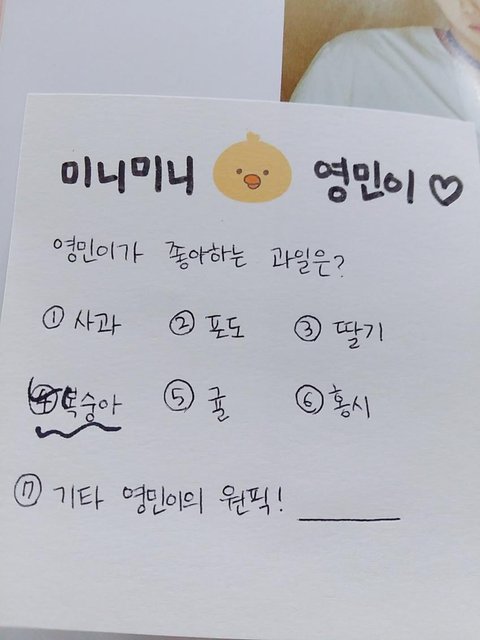 미니미니 영민이♡
영민이가 좋아하는 과일은?
① 사과 ② 포도 ③ 딸기
④ 복숭아 ⑤ 귤 ⑥ 홍시
⑦ 기타 영민이의 원픽! ________